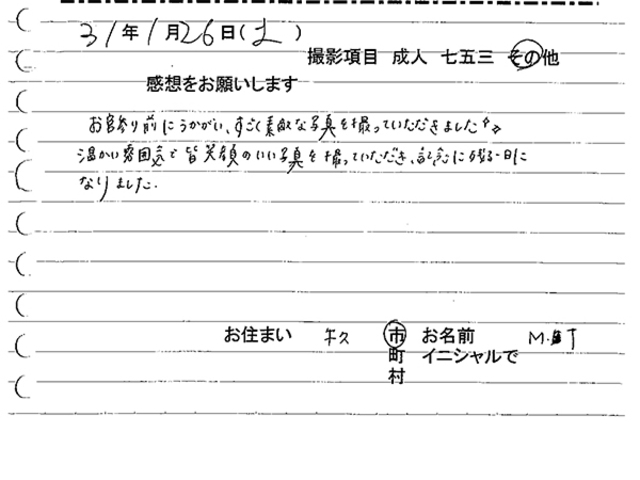 31年1月26日(土)
撮影項目 成人 七五三 その他
感想をお願いします
お宮参り前にうかがい、すごく素敵な写真を撮っていただきました
温かい雰囲気で皆笑顔のいい写真を撮っていただき、記念に残る一日に
なりました.
お住まい 牛久 市 お名前 M.T
町 イニシャルで
村